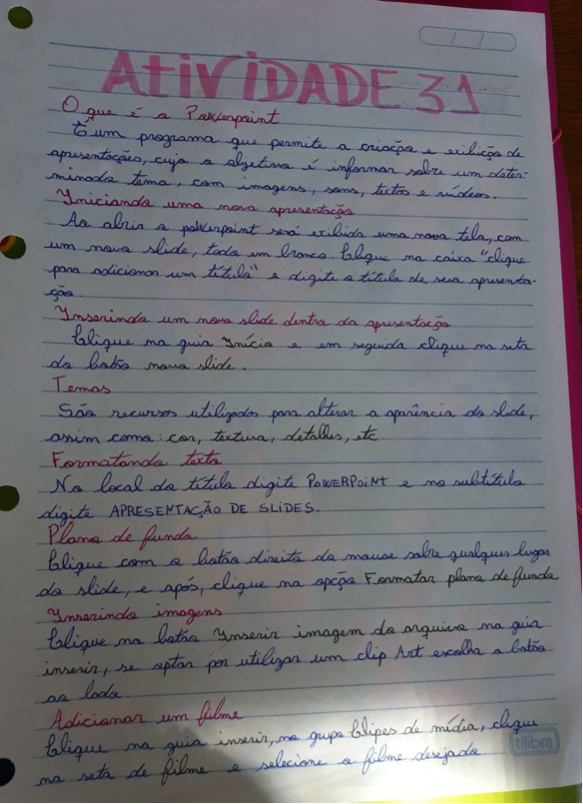 ATIVIDADE 31
O que é o Powerpoint
É um programa que permite a criação e exibição de
apresentações, cuja o objetivo é informar sobre um deter-
minado tema, com imagens, sons, textos e vídeos.
Iniciando uma nova apresentação
Ao abrir o powerpoint será exibida uma nova tela, com
um novo slide, todo em branco. Clique na caixa "clique
para adicionar um título" e digite o título de sua apresenta-
ção.
Inserindo um novo slide dentro da apresentação
Clique na guia Início e em seguida clique na seta
do botão novo slide.
Temas
São recursos utilizados para alterar a aparência do slide,
assim como: cor, textura, detalhes, etc
Formatando texto
No local do título digite POWERPOINT e no subtítulo
digite APRESENTAÇÃO DE SLIDES.
Plano de fundo
Clique com o botão direito do mouse sobre qualquer lugar
do slide, e após, clique na opção Formatar plano de fundo
Inserindo imagens
Clique no botão Inserir imagem do arquivo na guia
inserir, se optar por utilizar um clip Art escolha o botão
ao lado
Adicionar um filme
Clique na guia inserir, no grupo Clipes de mídia, clique
na seta de filme e selecione o filme desejado
tilibra